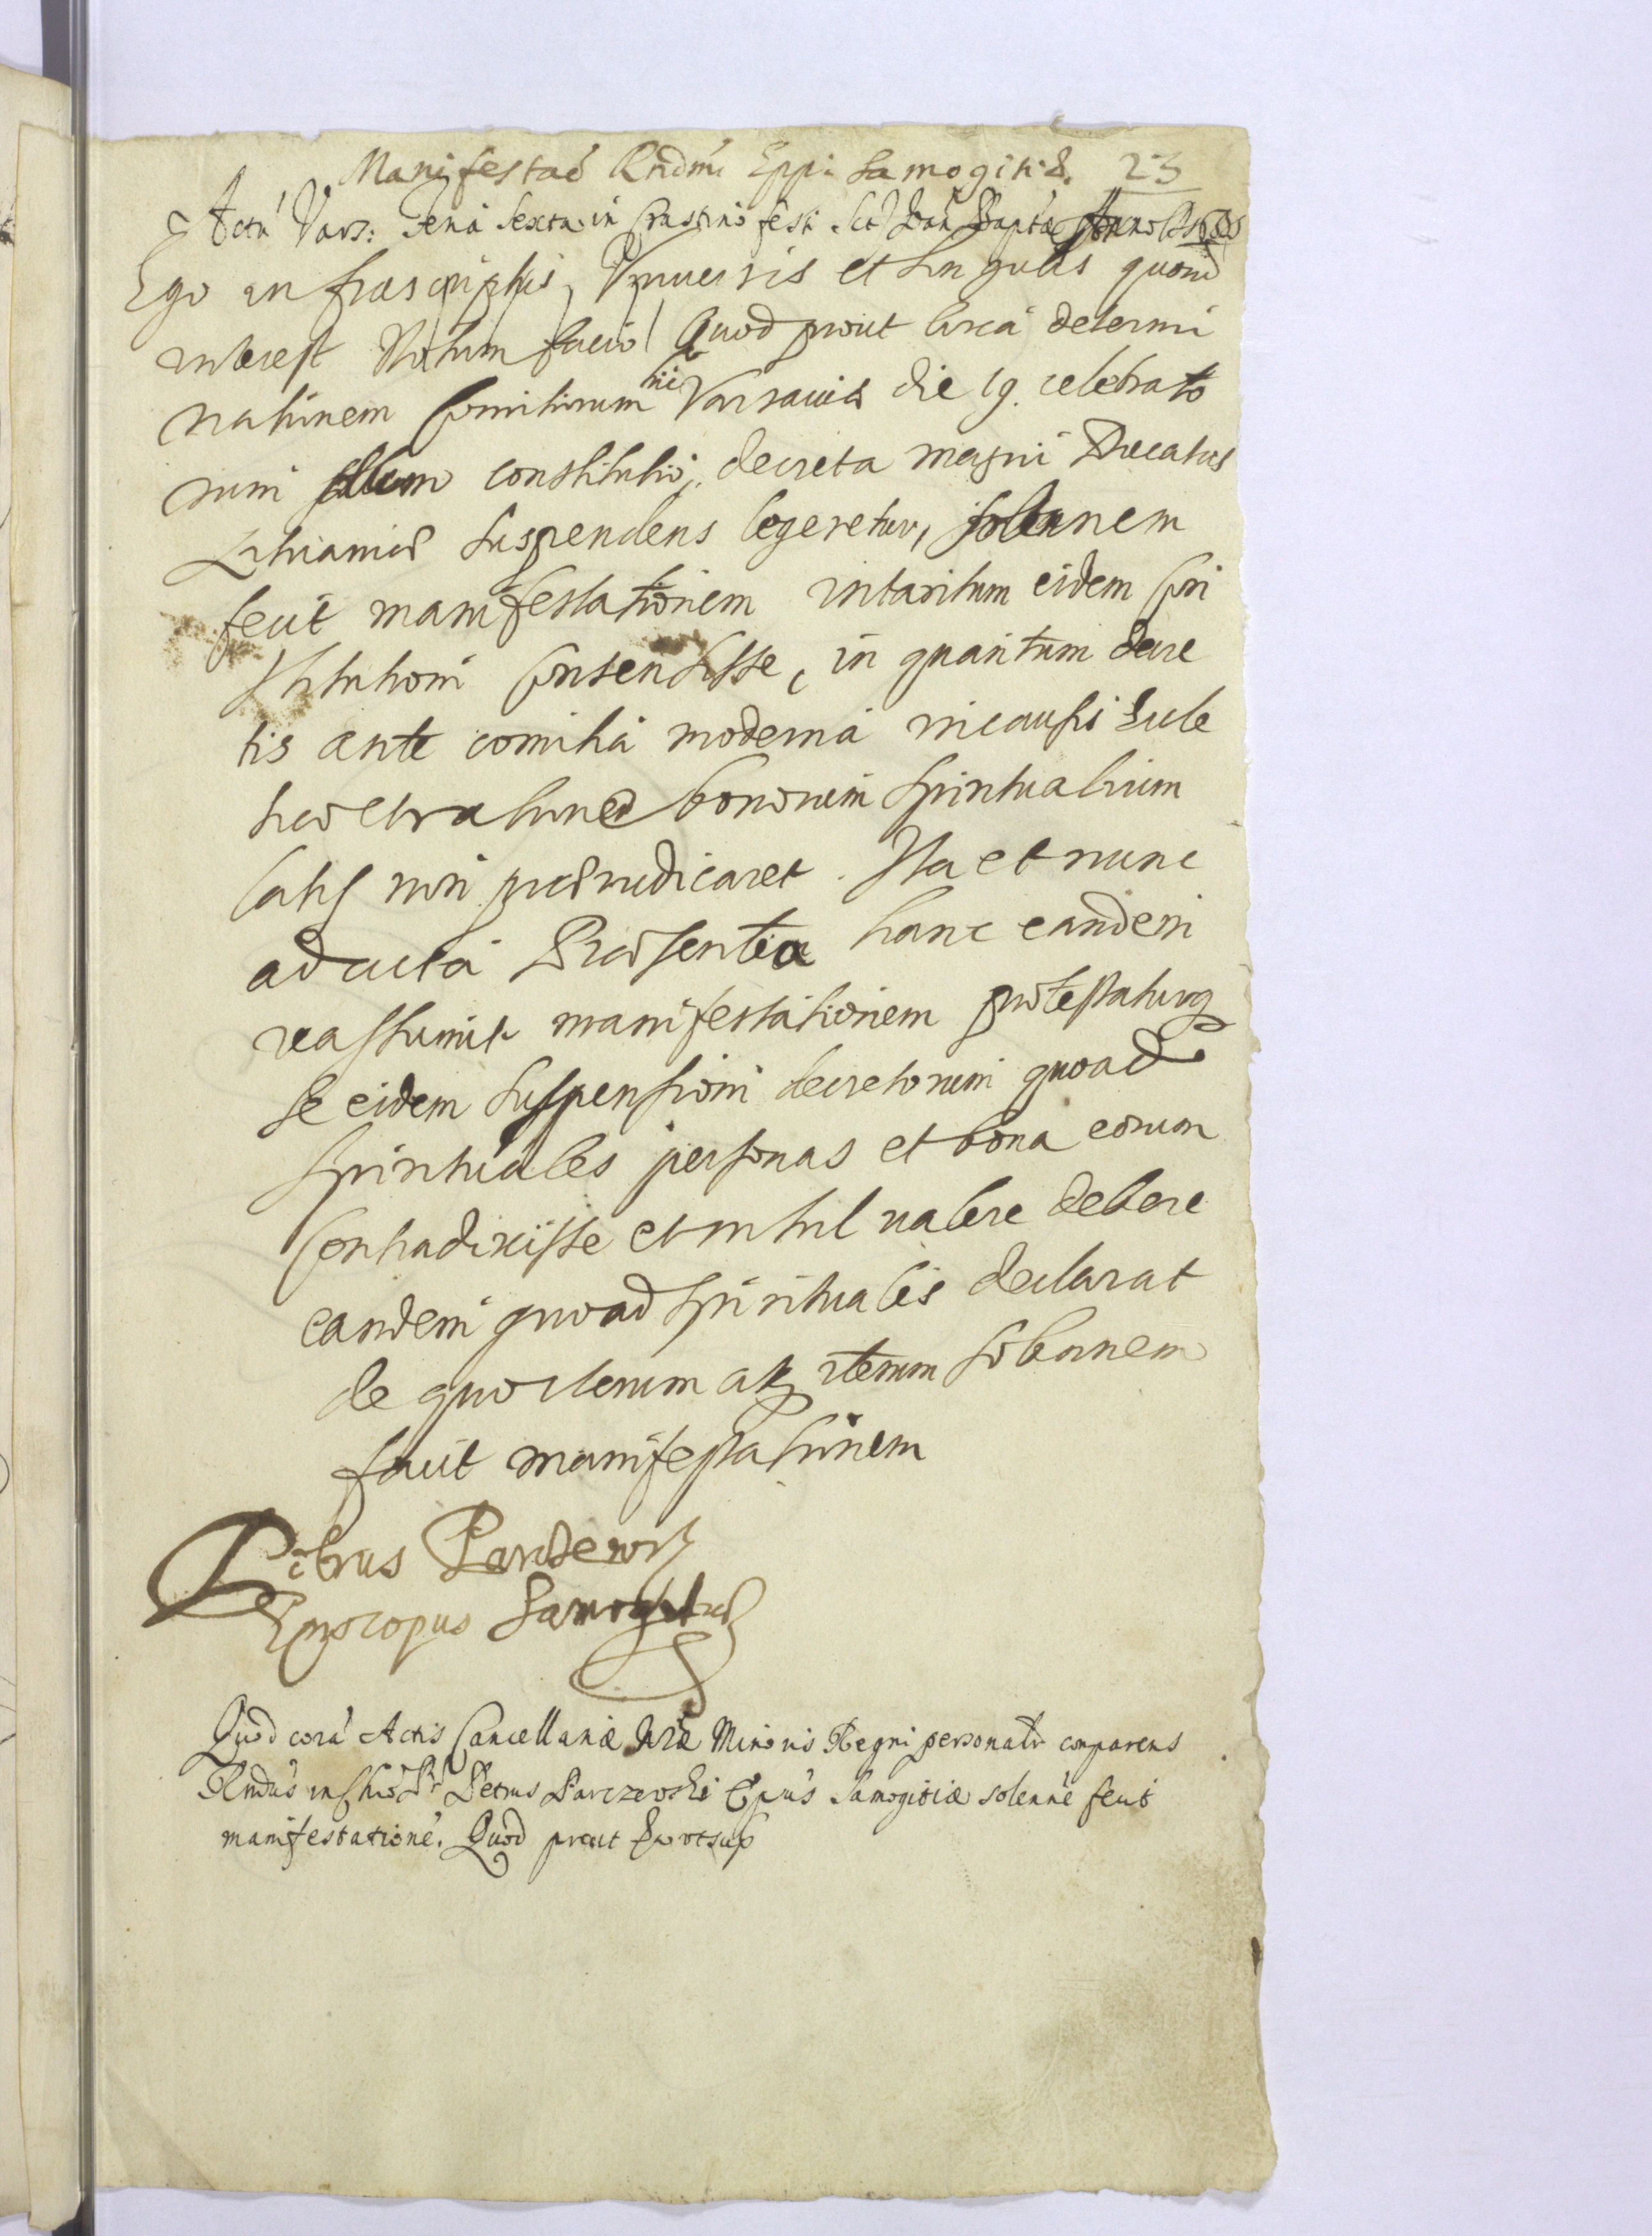 Manifestaõ Rndmi Eppi Samogitiæ. 23
Actũ Vars: Feria Sexta in Crastino festi Scti Joan Baptæ Anno
Ego infrascriptus, Vniuersis et singulis quorũ
interest Notum facio Quod prout circa determi
nationem Comitiorum hic Varsauiæ die 19. celebrato
rum dum constitutio, decreta magni Ducatus
Lithuaniæ suspendens legeretur, solennem
fecit manifestationem intantum eidem Con
stitutioni consensisse, in quantum decre
tis ante comitia moderna in causis
bonorum Spiritualium
latis non præiudicaret. Ita et nunc
ad acta Præsentia hanc eandem
reassumit manifestationem protestaturq
se eidem suspensioni decretorum quoad
Spirituales personas et bona eorum
Contradixisse et nihil valere debere
eandem quoad Spirituales declarat
de quo iterum atq iterum Solennem
facit manifestationem
Petrus Parczewsk
Episcopus Samogitiæ
Quod corã Actis Cancellariæ Nræ Minoris Regni personalr comparens
Rndus in Chro Pr Petrus Parczewski Epus Samogitiæ solennẽ fecit
manifestationẽ. Quod prout